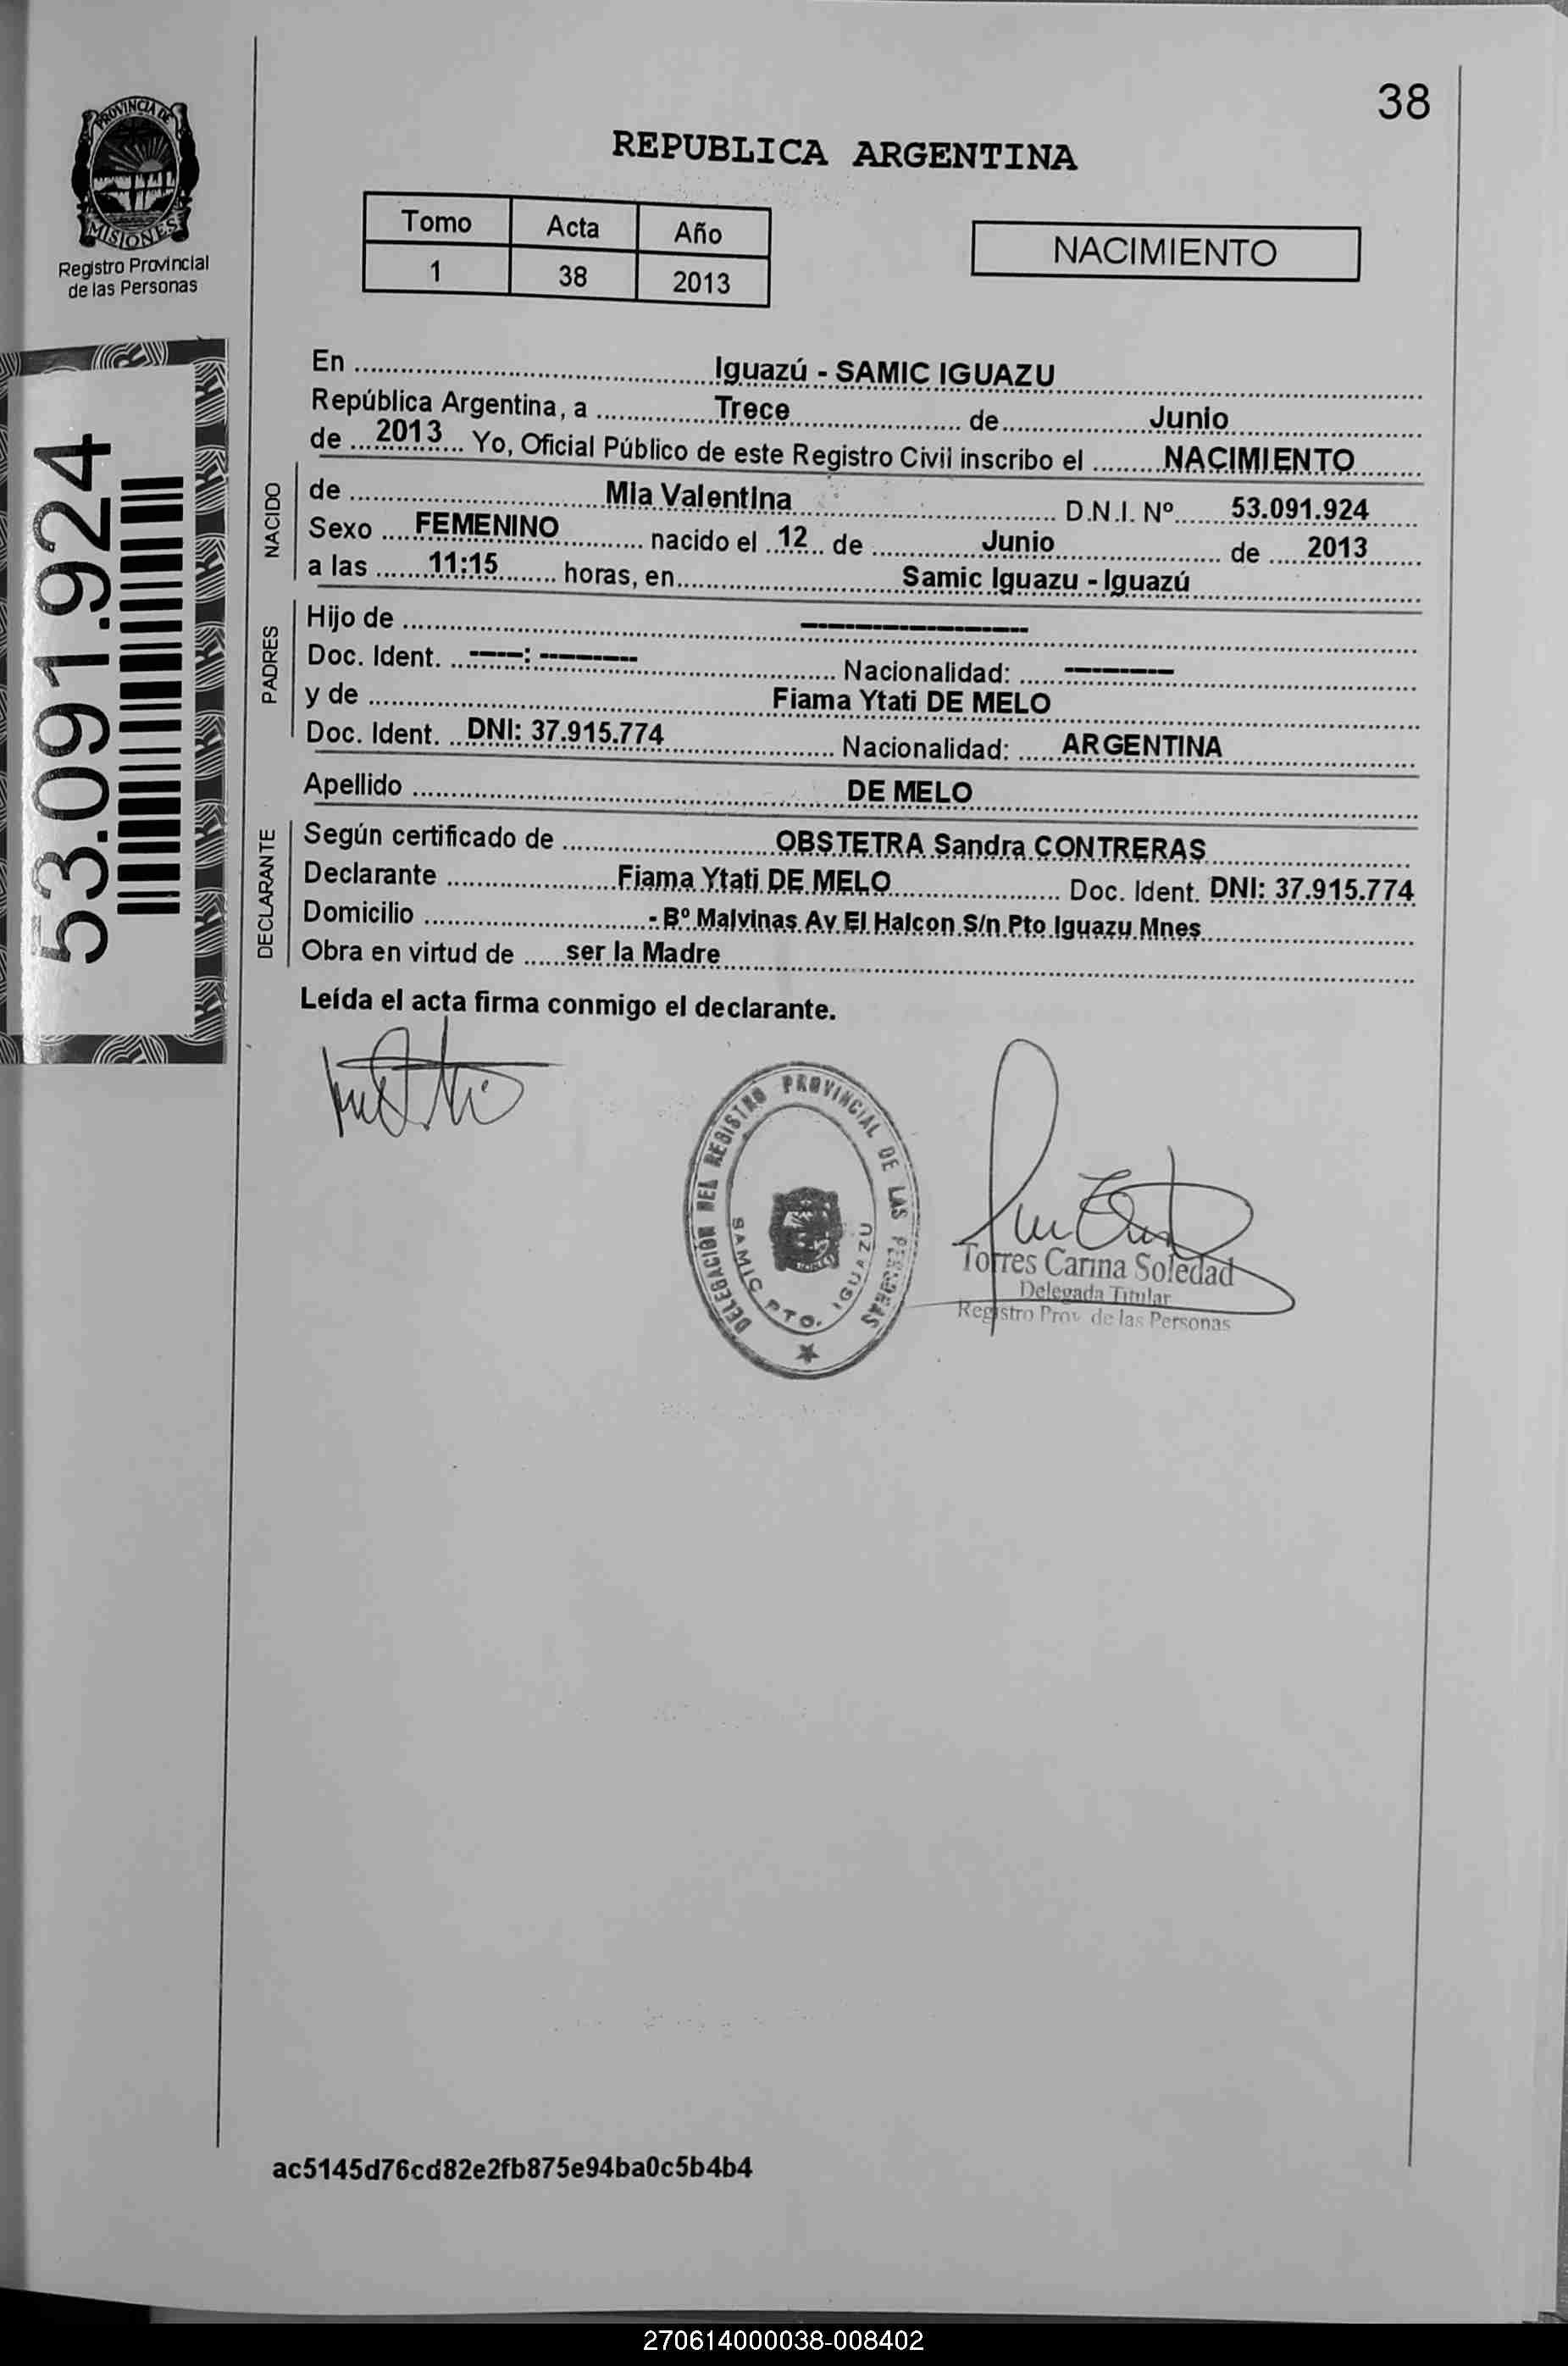 38
PROVINCIA DE
MISIONES
Registro Provincial
de las Personas
REPUBLICA ARGENTINA
Tomo Acta Año
1 38 2013
NACIMIENTO
53.091.924
En Iguazú - SAMIC IGUAZU
República Argentina, a Trece de Junio
de 2013 Yo, Oficial Público de este Registro Civil inscribo el NACIMIENTO
NACIDO
de Mia Valentina D.N.I. Nº 53.091.924
Sexo FEMENINO nacido el 12 de Junio de 2013
a las 11:15 horas, en Samic Iguazu - Iguazú
PADRES
Hijo de --------------------
Doc. Ident. ----: --------- Nacionalidad: ----------
y de Fiama Ytati DE MELO
Doc. Ident. DNI: 37.915.774 Nacionalidad: ARGENTINA
Apellido DE MELO
DECLARANTE
Según certificado de OBSTETRA Sandra CONTRERAS
Declarante Fiama Ytati DE MELO Doc. Ident. DNI: 37.915.774
Domicilio - Bº Malvinas Av El Halcon S/n Pto Iguazu Mnes
Obra en virtud de ser la Madre
Leída el acta firma conmigo el declarante.
DELEGACIÓN DEL REGISTRO PROVINCIAL DE LAS PERSONAS
SAMIC PTO. IGUAZU
Torres Carina Soledad
Delegada Titular
Registro Prov. de las Personas
ac5145d76cd82e2fb875e94ba0c5b4b4
270614000038-008402